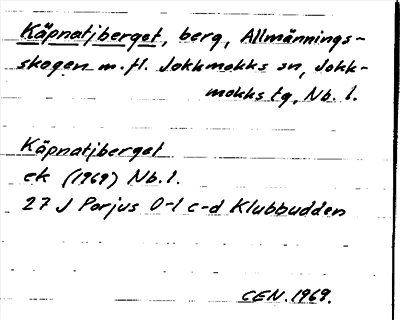 Käpnatjberget, berg, Allmännings-
skogen m. fl. Jokkmokks sn, Jokk-
mokks tg, Nb. l.
Käpnatjberget
ek (1969) Nb. l.
27 J Porjus 0-1 c-d Klubbudden
CEN. 1969.